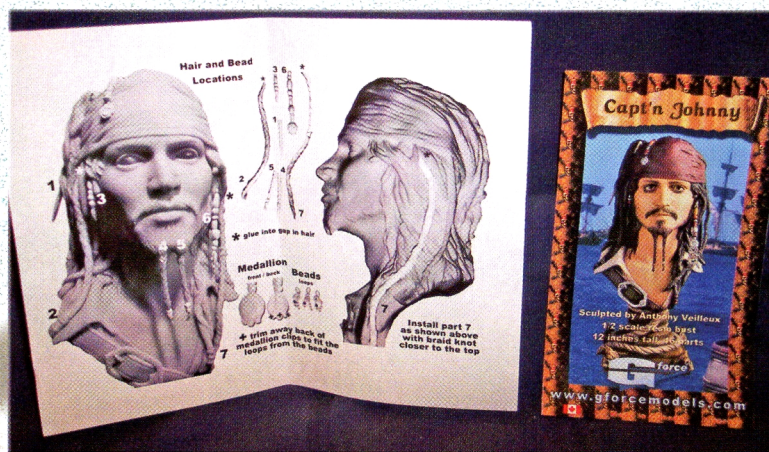 Hair and Bead
Locations
* 3 6 *
1
1
3
2
5
4
6
7
* glue into gap in hair
*
4 5
3
2
7
Medallion
front / back
Beads
loops
+ trim away back of
medallion clips to fit the
loops from the beads
7
Install part 7
as shown above
with braid knot
closer to the top
Capt'n Johnny
Sculpted by Anthony Veilleux
1/2 scale resin bust
12 inches tall, 16 parts
G force
www.gforcemodels.com